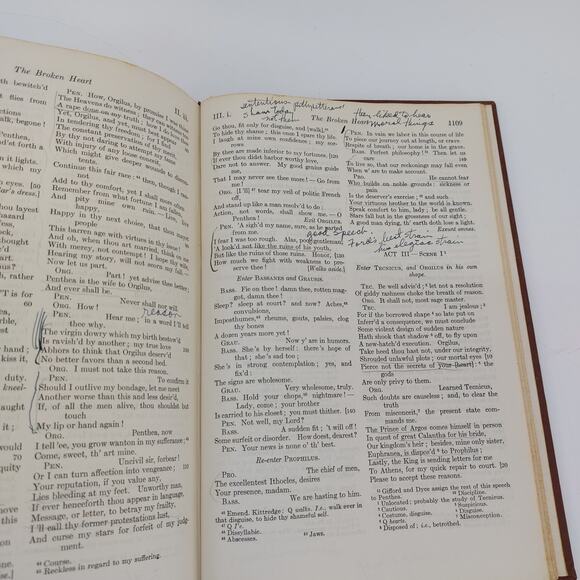 The Broken Heart
II. iii.
PEN. How, Orgilus, by promise I was thine
The Heavens do witness; they can witness too
A rape done on my truth: how I do love thee
Yet, Orgilus, and yet, must best appear
In tendering thy freedom; for I find
The constant preservation of thy merit,
By thy not daring to attempt my fame
With injury of any loose conceit,
Which might give deeper wounds to discontents.
Continue this fair race; then, though I cannot
Add to thy comfort, yet I shall more often
Remember from what fortune I am fallen,
And pity mine own ruin.
happy,
Happy in thy next choice, that thou mayst people
This barren age with virtues in thy issue!
And oh, when thou art married, think on me
With mercy, not contempt! I hope thy wife,
Hearing my story, will not scorn my fall.—
Now let us part.
ORG. Part! yet advise thee better:
Penthea is the wife to Orgilus,
And ever shall be.
PEN. Never shall nor will.
ORG. How!
PEN. Hear me; in a word I'll tell
thee why.
reason
The virgin dowry which my birth bestow'd
Is ravish'd by another; my true love
Abhors to think that Orgilus deserv'd
No better favors than a second bed.
ORG. I must not take this reason.
PEN. To confirm it
Should I outlive my bondage, let me meet
Another worse than this and less desir'd,
If, of all the men alive, thou shouldst but
touch
My lip or hand again!
ORG. Penthea, now
I tell 'ee, you grow wanton in my sufferance:
Come, sweet, th' art mine.
PEN. Uncivil sir, forbear!
Or I can turn affection into vengeance;
Your reputation, if you value any,
Lies bleeding at my feet. Unworthy man,
If ever henceforth thou appear in language,
Message, or letter, to betray my frailty,
I'll call thy former protestations lust,
And curse my stars for forfeit of my judgment.
44 Course.
45 Reckless in regard to my suffering.
III. i.
The Broken Heart
1109
sententious
than today
then liked to hear
moral things
Go thou, fit only for disguise, and walks,
To hide thy shame; this once I spare thy life.
I laugh at mine own confidence; my sorrows
By thee are made inferior to my fortunes. [120
If ever thou didst harbor worthy love,
Dare not to answer. My good genius guide
me,
That I may never see thee more!—Go from
me!
ORG. I'll tear my veil of politic French
off,
And stand up like a man resolv'd to do:
Action, not words, shall show me.—O
Penthea! Exit Orgilus.
PEN. 'A sigh'd my name, sure, as he parted
from me:
good speech.
I fear I was too rough. Alas, poor gentleman,
'A look'd not like the ruins of his youth,
But like the ruins of those ruins. Honor, [130
How much we fight with weakness to preserve thee! [Walks aside.]
Enter BASSANES and GRAUSIS.
BASS. Fie on thee! damn thee, rotten maggot, damn thee!
Sleep? sleep at court? and now? Aches,
convulsions,
Imposthumes, rheums, gouts, palsies, clog
thy bones
A dozen years more yet!
GRAU. Now y'are in humors.
BASS. She's by herself; there's hope of
that; she's sad too;
She's in strong contemplation; yes, and
fix'd:
The signs are wholesome.
GRAU. Very wholesome, truly.
BASS. Hold your chops, nightmare!—
Lady, come; your brother
Is carried to his closet; you must thither. [140
PEN. Not well, my Lord?
BASS. A sudden fit; 't will off!
Some surfeit or disorder. How dost, dearest?
PEN. Your news is none o' th' best.
Re-enter PROPHILUS.
PRO. The chief of men,
The excellentest Ithocles, desires
Your presence, madam.
BASS. We are hasting to him.
46 Emend. Kittredge; Q walks. I.e., walk ever in that disguise, to hide thy shameful self.
47 Q I'e.
48 Dissyllabic.
49 Abscesses.
50 Jaws.
PEN. In vain we labor in this course of life
To piece our journey out at length, or crave
Respite of breath; our home is in the grave.
BASS. Perfect philosophy! Then let us
care
To live so, that our reckonings may fall even
When w' are to make account.
PEN. He cannot fear
Who builds on noble grounds: sickness or
pain
Is the deserver's exercise; and such
Your virtuous brother to the world is known.
Speak comfort to him, lady; be all gentle.
Stars fall but in the grossness of our sight;
A good man dying, th' earth doth lose a light.
Exeunt omnes.
Ford's best strain
his elegiac strain
ACT III — SCENE 1
Enter TECNICUS, and ORGILUS in his own
shape.
TEC. Be well advis'd; let not a resolution
Of giddy rashness choke the breath of reason.
ORG. It shall not, most sage master.
TEC. I am jealous;
For if the borrowed shape so late put on
Inferr'd a consequence, we must conclude
Some violent design of sudden nature
Hath shook that shadow off, to fly upon
A new-hatch'd execution. Orgilus,
Take heed thou hast not, under our integrity,
Shrouded unlawful plots; our mortal eyes [10
Pierce not the secrets of your heart; the
gods
Are only privy to them.
ORG. Learned Tecnicus,
Such doubts are causeless; and, to clear the
truth
From misconceit, the present state commands me.
The Prince of Argos comes himself in person
In quest of great Calantha for his bride,
Our kingdom's heir; besides, mine only sister,
Euphranea, is dispos'd to Prophilus;
Lastly, the King is sending letters for me
To Athens, for my quick repair to court. [20
Please to accept these reasons.
Gifford and Dyce assign the rest of this speech to Penthea.
Discipline.
Unlocated; probably the study of Tecnicus.
Cautious.
Suspicious.
Costume, disguise.
Disguise.
Q hearts.
Misconception.
Disposed of; i.e., betrothed.